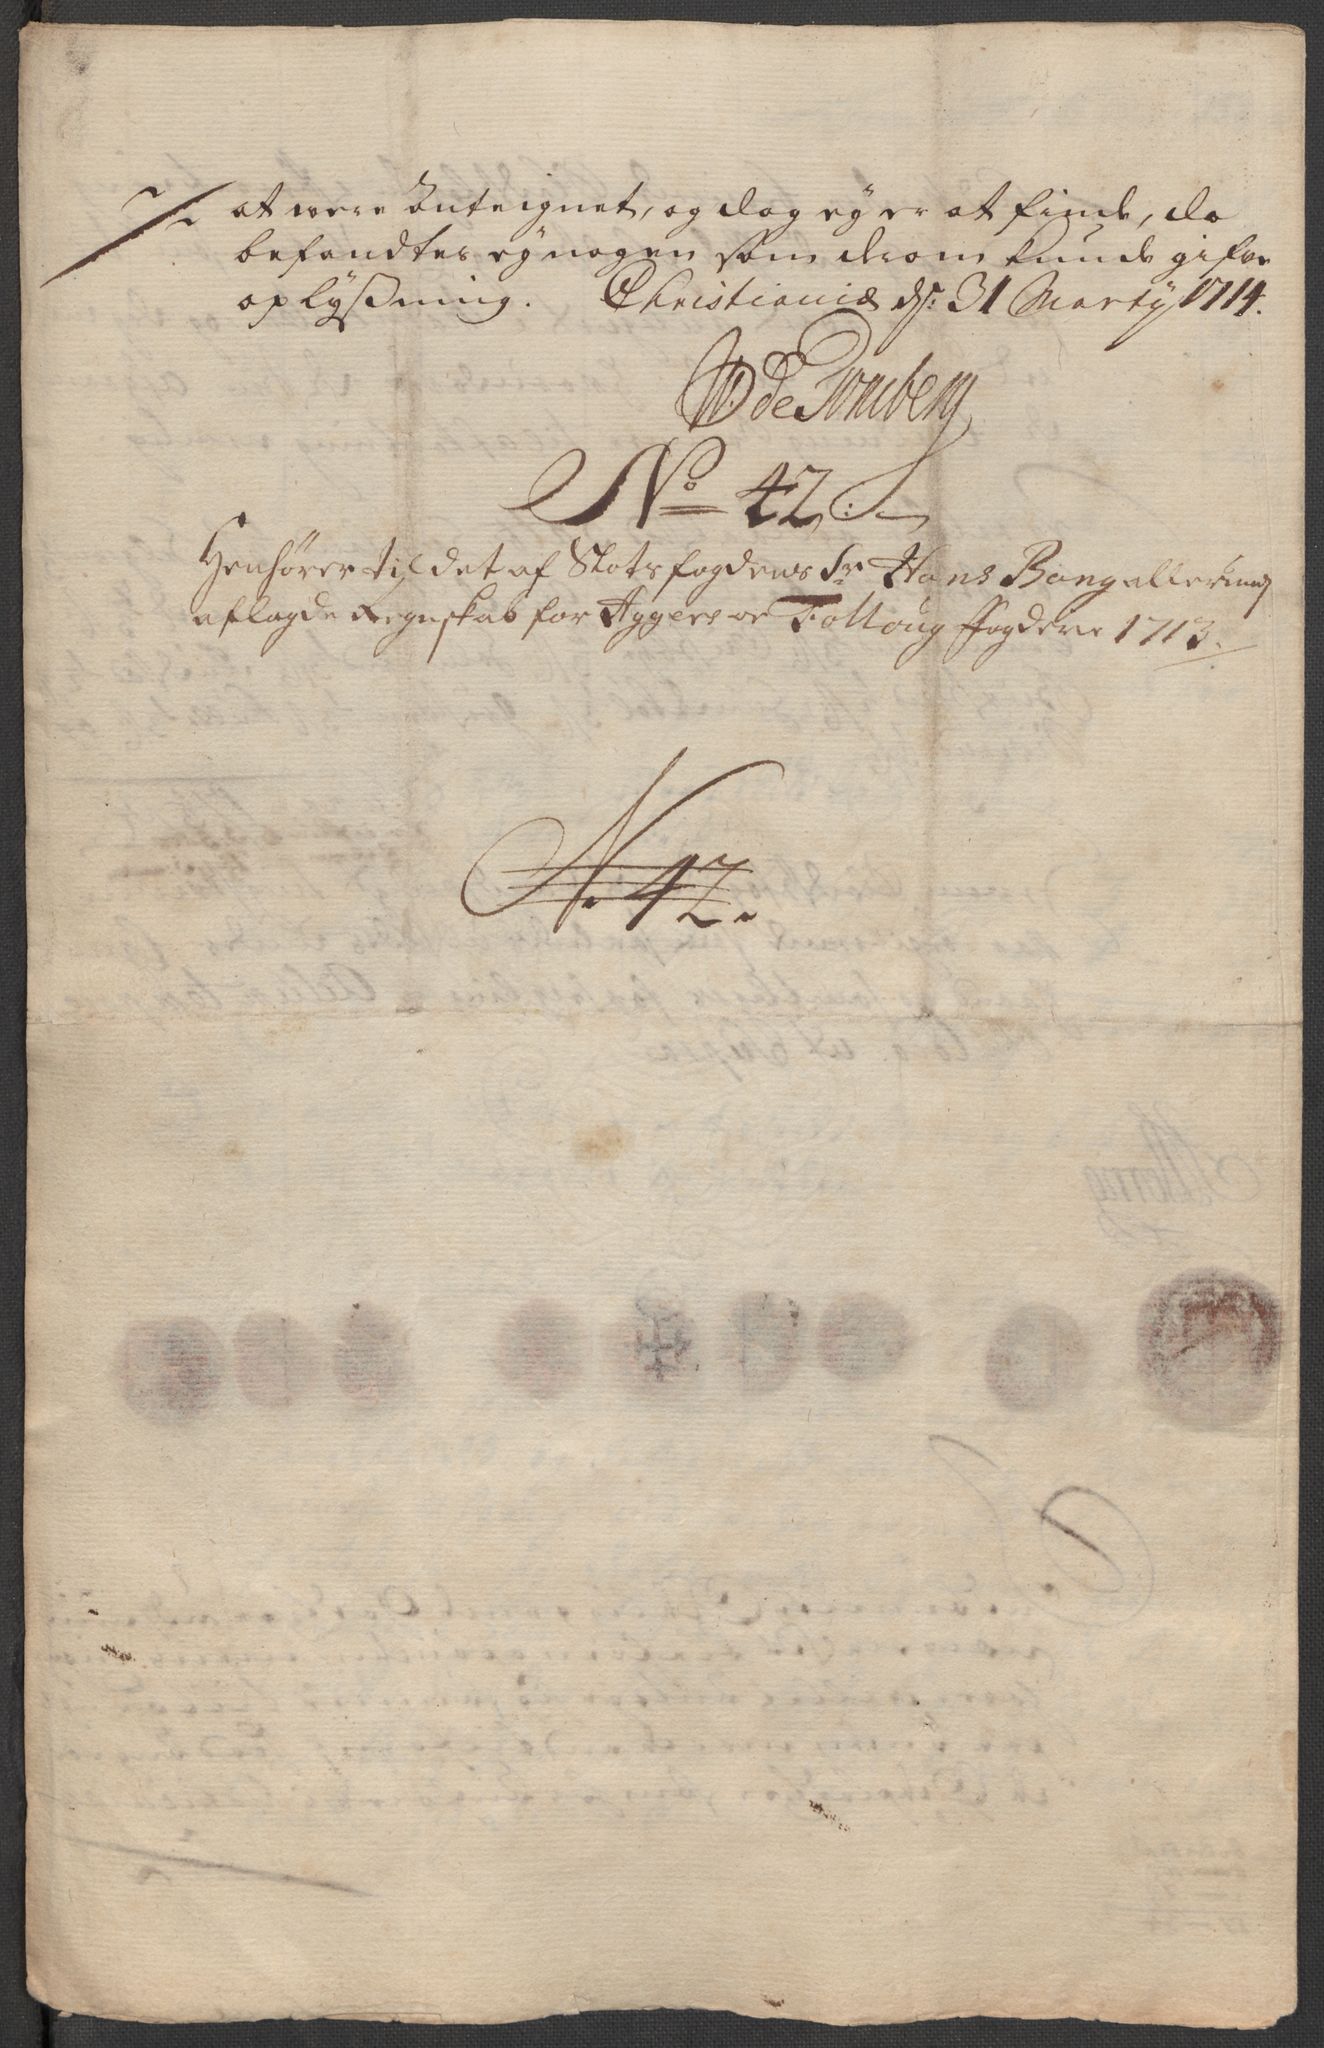 at were Anteignet, og dog ey er at finde, da
befandtes ey nogen som derom kunde gifve
oplysning. Christianiæ ds: 31 Marty 1714.
de Tonsberg
No 42:
Henhører til det af Slots fogdens Sr Hans Bang allerund
aflagde Regnskab for Aggers oc Folloug Fogderie 1713.
N. 42.